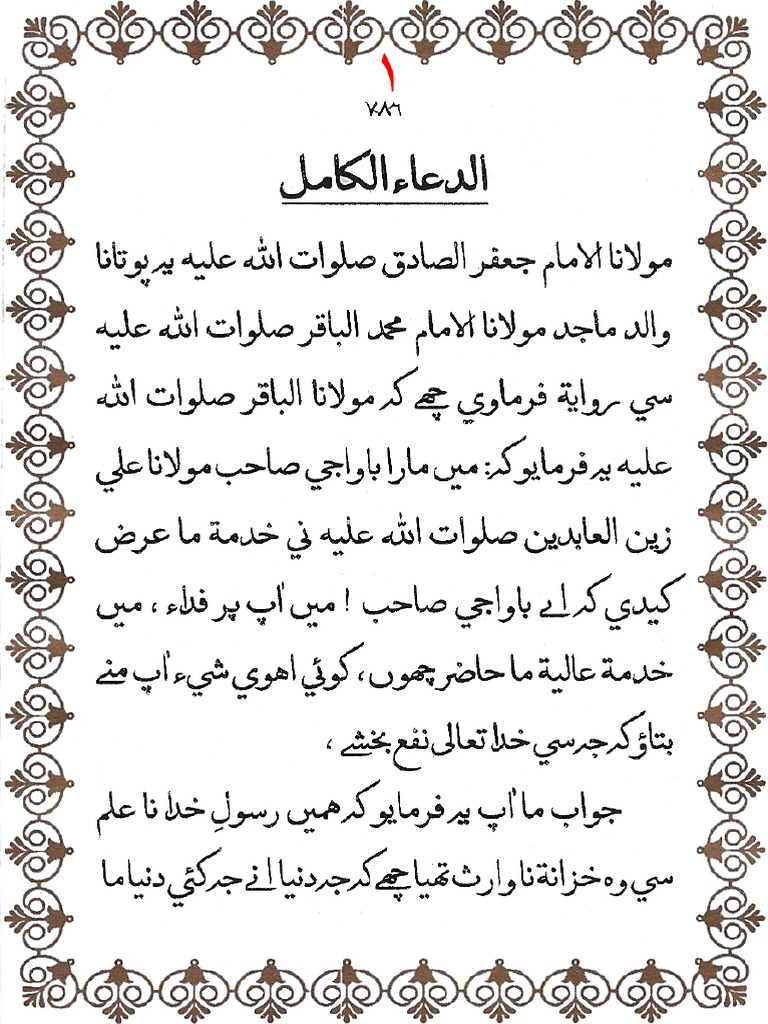 ١
٧٨٦
الدعاء الكامل
مولانا الامام جعفر الصادق صلوات الله عليه يه پوتانا
والد ماجد مولانا الامام محمد الباقر صلوات الله عليه
سي رواية فرماوي چھے كہ مولانا الباقر صلوات الله
عليه يه فرمايو كہ: ميں مارا باواجي صاحب مولانا علي
زين العابدين صلوات الله عليه ني خدمة ما عرض
كيدي كہ اے باواجي صاحب ! ميں اٰپ پر فداء ، ميں
خدمة عالية ما حاضر چھوں، كوئي اهوي شيء اٰپ منے
بتاؤ كہ جہ سي خدا تعالى نفع بخشے ،
جواب ما اٰپ يه فرمايو كہ هميں رسولِ خدا نا علم
سي وه خزانة نا وارث تھيا چھے كہ جہ دنيا انے جہ كئي دنيا ما